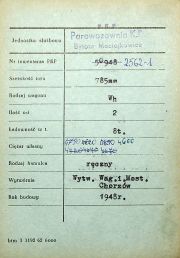 P K P
Jednostka służbowa Parowozownia K.P.
Bytom Maciejkowice
Nr inwentarza PKP 5°948 - 2562-1
Szerokość toru 785mm
Rodzaj wagonu Wh
Ilość osi 2
Ładowność w t. 8t.
6750 4600
Ciężar własny
Rodzaj hamulca ręczny
Wytwórnia Wytw. Wag. i Most.
Chorzów
Rok budowy 1948r.